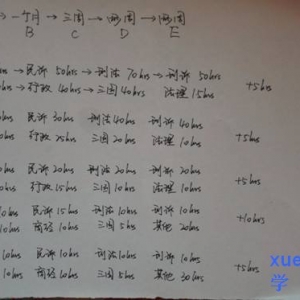 →一个月→三周→两周→两周
B C D E
hrs→民诉50hrs→刑法70hrs→刑诉50hrs
hrs→行政40hrs→三国40hrs 法理15hrs +5hrs
hrs 民诉30hrs 刑法40hrs 刑诉40hrs
hrs 行政25hrs 三国20hrs 法理10hrs +5hrs
hrs 民诉20hrs 刑法20hrs 刑诉20hrs
hrs 行政15hrs 三国10hrs 法理10hrs +5hrs
10hrs 民诉15hrs 刑法10hrs 刑诉10hrs
10hrs 商经10hrs 三国5hrs 其他20hrs +10hrs
10hrs 民诉10hrs 刑法10hrs 刑诉10hrs
10hrs 商经10hrs 三国5hrs 其他30hrs +5hrs
xue
学